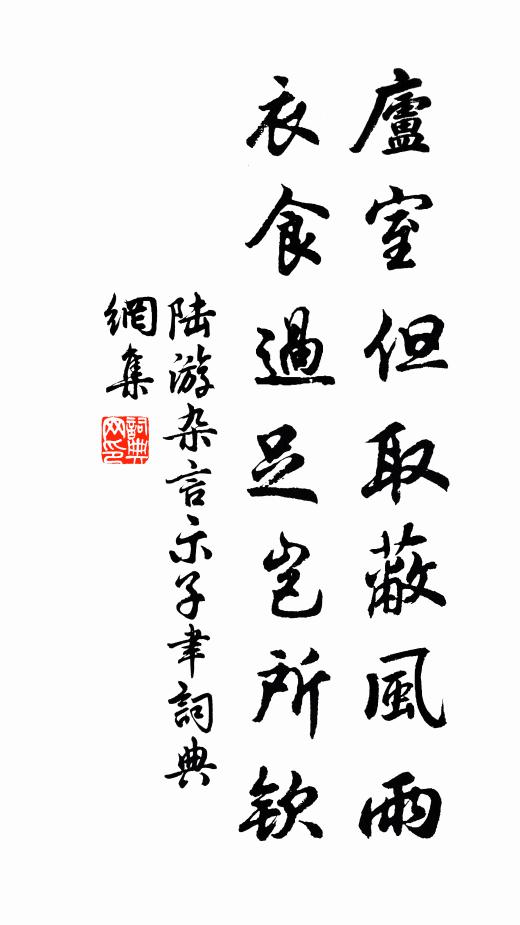 廬室但取蔽風雨
衣食過足豈所欽
陆游杂言示子聿詞典
網集
詞典
网印